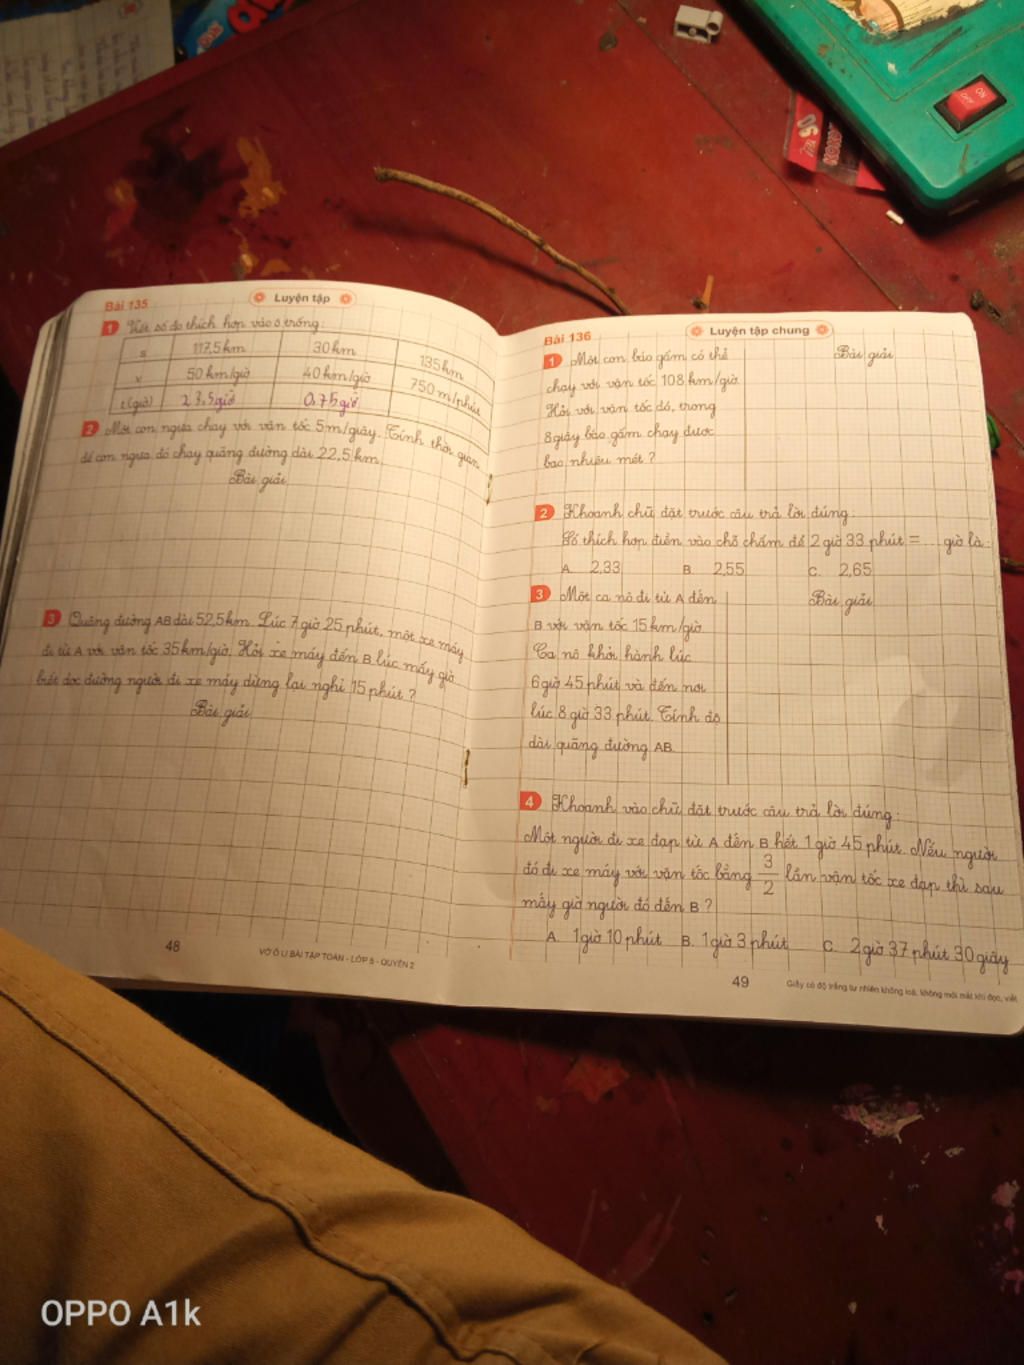 ON
OFF
Bài 135
Luyện tập
1 Viết số đo thích hợp vào ô trống:
s 117,5km 30km 135km
v 50km/giờ 40km/giờ 750m/phút
t(giờ) 23,5giờ 0,75giờ
2 Một con ngựa chạy với vận tốc 5m/giây. Tính thời gian
để con ngựa đó chạy quãng đường dài 22,5km.
Bài giải
3 Quãng đường AB dài 52,5km. Lúc 7giờ 25phút, một xe máy
đi từ A với vận tốc 35km/giờ. Hỏi xe máy đến B lúc mấy giờ
biết dọc đường người đi xe máy dừng lại nghỉ 15phút?
Bài giải
48
VỞ Ô LI BÀI TẬP TOÁN - LỚP 5 - QUYỂN 2
Bài 136
Luyện tập chung
1 Một con báo gấm có thể
chạy với vận tốc 108km/giờ.
Hỏi với vận tốc đó, trong
8giây báo gấm chạy được
bao nhiêu mét?
Bài giải
2 Khoanh chữ đặt trước câu trả lời đúng:
Số thích hợp điền vào chỗ chấm để 2giờ 33phút = ... giờ là:
A. 2,33 B. 2,55 C. 2,65
3 Một ca nô đi từ A đến
B với vận tốc 15km/giờ.
Ca nô khởi hành lúc
6giờ 45phút và đến nơi
lúc 8giờ 33phút. Tính độ
dài quãng đường AB.
Bài giải
4 Khoanh vào chữ đặt trước câu trả lời đúng:
Một người đi xe đạp từ A đến B hết 1giờ 45phút. Nếu người
đó đi xe máy với vận tốc bằng 3/2 lần vận tốc xe đạp thì sau
mấy giờ người đó đến B?
A. 1giờ 10phút B. 1giờ 3phút C. 2giờ 37phút 30giây
49
Giấy có độ trắng tự nhiên không loá, không mỏi mắt khi đọc, viết
OPPO A1k